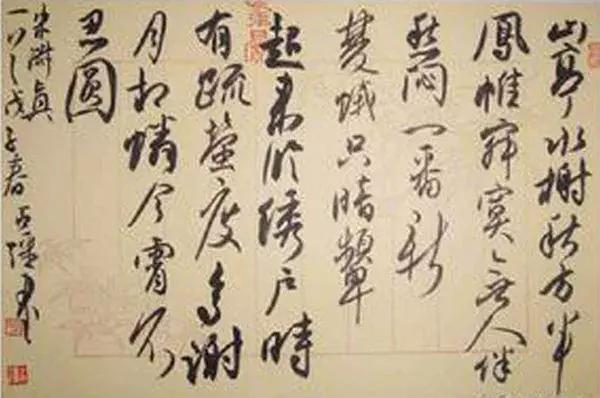 山亭水榭秋方半
鳳帷寂寞無人伴
愁悶一番新
雙蛾只暗顰
起來臨綉戶時
有疏螢度多謝
月相憐今宵不
忍圓
朱淑真
戊子春